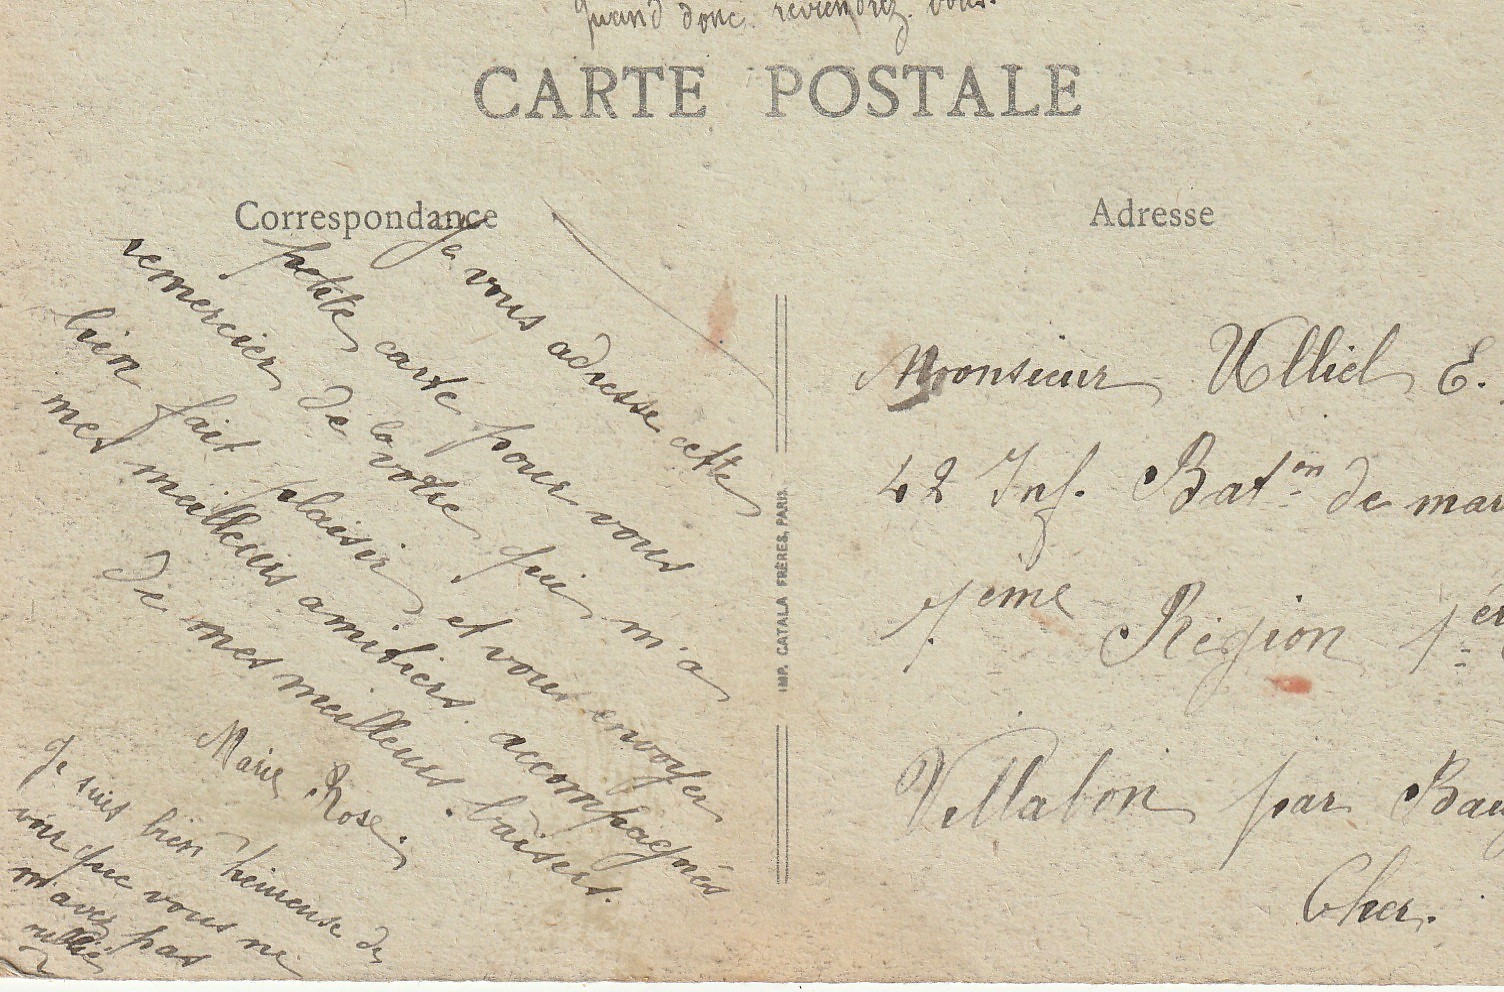 Quand donc reviendrez vous.
CARTE POSTALE
Correspondance
Je vous adresse cette
petite carte pour vous
remercier de la votre qui m'a
bien fait plaisir et vous envoyer
mes meilleurs amitiers accompagnés
de mes meilleurs baisers.
Marie Rose.
Je suis bien heureuse de
voir que vous ne
m'avez pas
IMP. CATALA FRÈRES, PARIS
Adresse
Monsieur Ulliel E.
42 Inf. Bat.on de mar
Région
Villabon par Bau
Cher.